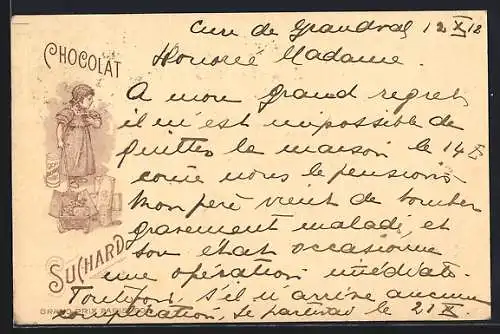 Cure de Grandval 12 X 12
CHOCOLAT
Honorée Madame.
A mon grand regret
il m'est impossible de
quitter la maison le 14 X
come nous le pensions
Mon père vient de tomber
gravement malade, et
son état occasionne
SUCHARD
une opération imédiate.
Toutefois s'il n'arrive aucune
GRAND PRIX PARIS
complication, je partirai le 21 X